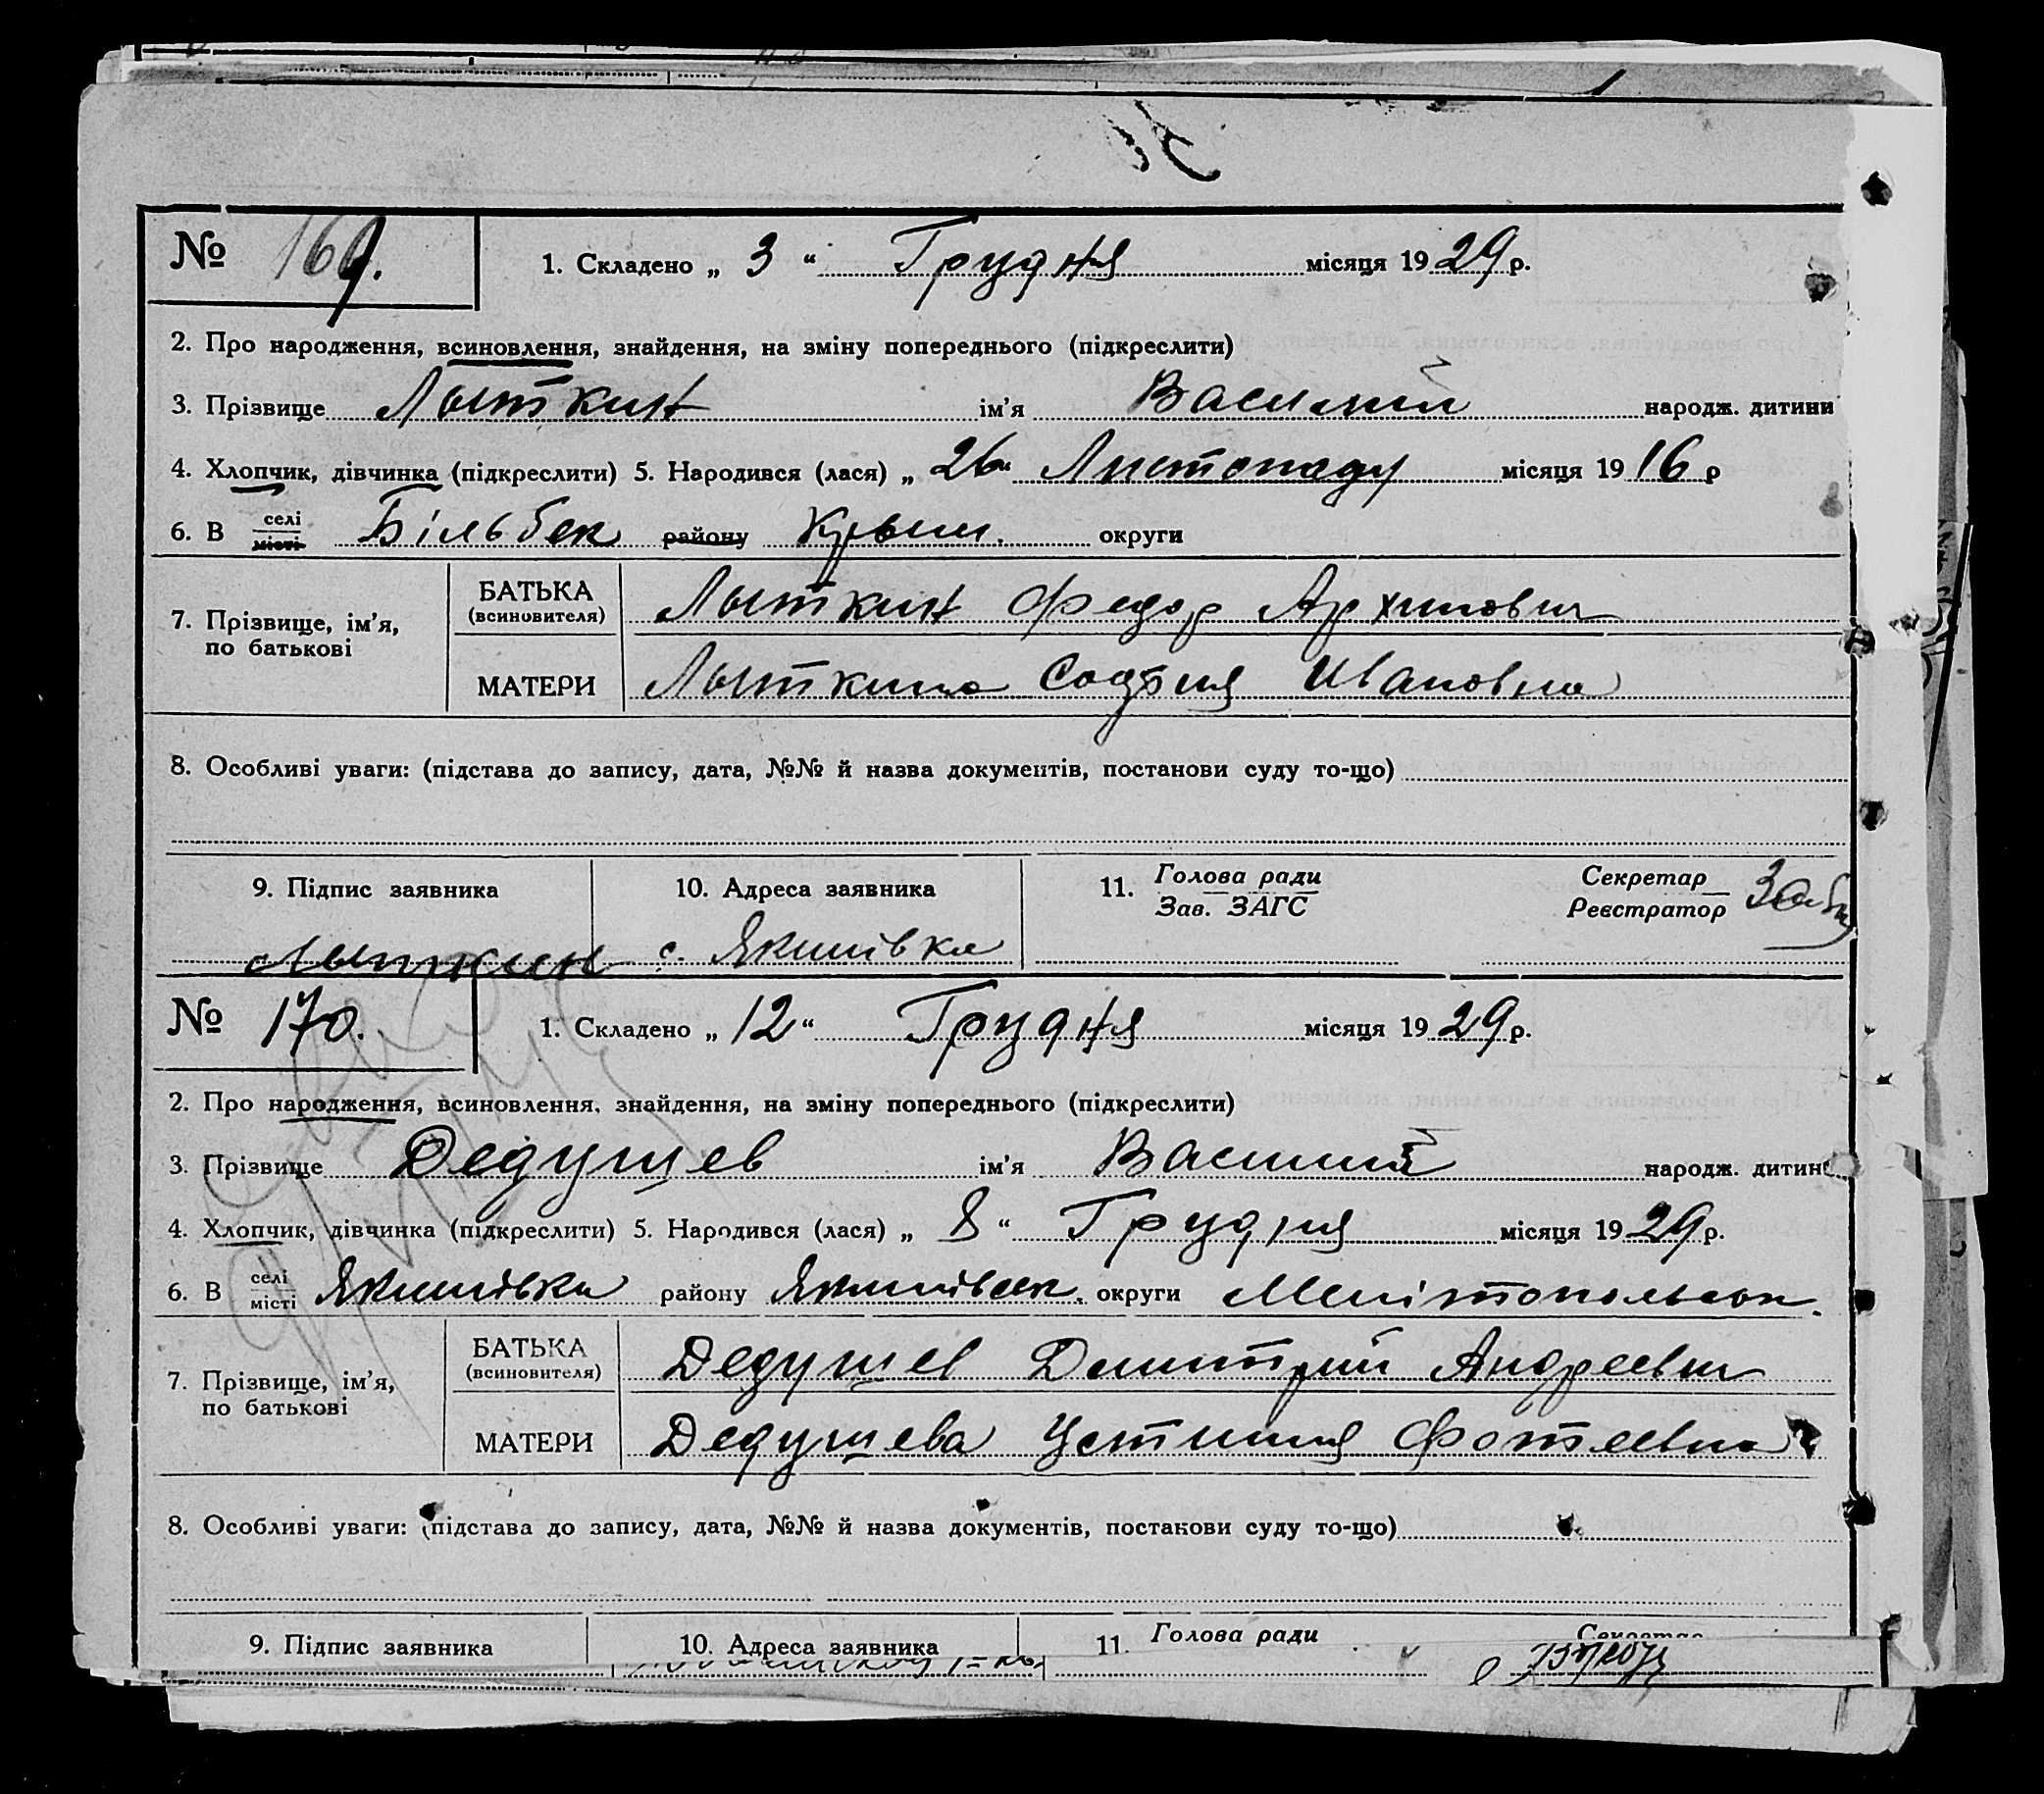 № 169.
1. Складено „ 3 “ Грудня місяця 1929 р.
2. Про народження, всиновлення, знайдення, на зміну попереднього (підкреслити)
3. Прізвище Лыткин ім’я Василий народж. дитини
4. Хлопчик, дівчинка (підкреслити) 5. Народився (лася) „ 26 “ Листопаду місяця 1916 р
6. В селі місті Більбек району Крым. округи
7. Прізвище, ім’я, по батькові
БАТЬКА (всиновителя) Лыткин Федор Архипович
МАТЕРИ Лыткина София Ивановна
8. Особливі уваги: (підстава до запису, дата, №№ й назва документів, постанови суду то-що)
9. Підпис заявника 10. Адреса заявника 11. Голова ради Секретар
Зав. ЗАГС Реєстратор
Лыткин с. Якимівка
№ 170.
1. Складено „ 12 “ Грудня місяця 1929 р.
2. Про народження, всиновлення, знайдення, на зміну попереднього (підкреслити)
3. Прізвище Дедушев ім’я Василий народж. дитин
4. Хлопчик, дівчинка (підкреслити) 5. Народився (лася) „ 8 “ Грудня місяця 1929 р.
6. В селі місті Якимівка району Якимівськ. округи Мелітопольськ.
7. Прізвище, ім’я, по батькові
БАТЬКА (всиновителя) Дедушев Димитрий Андреевич
МАТЕРИ Дедушева Устиния Фотеевна
8. Особливі уваги: (підстава до запису, дата, №№ й назва документів, постанови суду то-що)
9. Підпис заявника 10. Адреса заявника 11. Голова ради Секретар